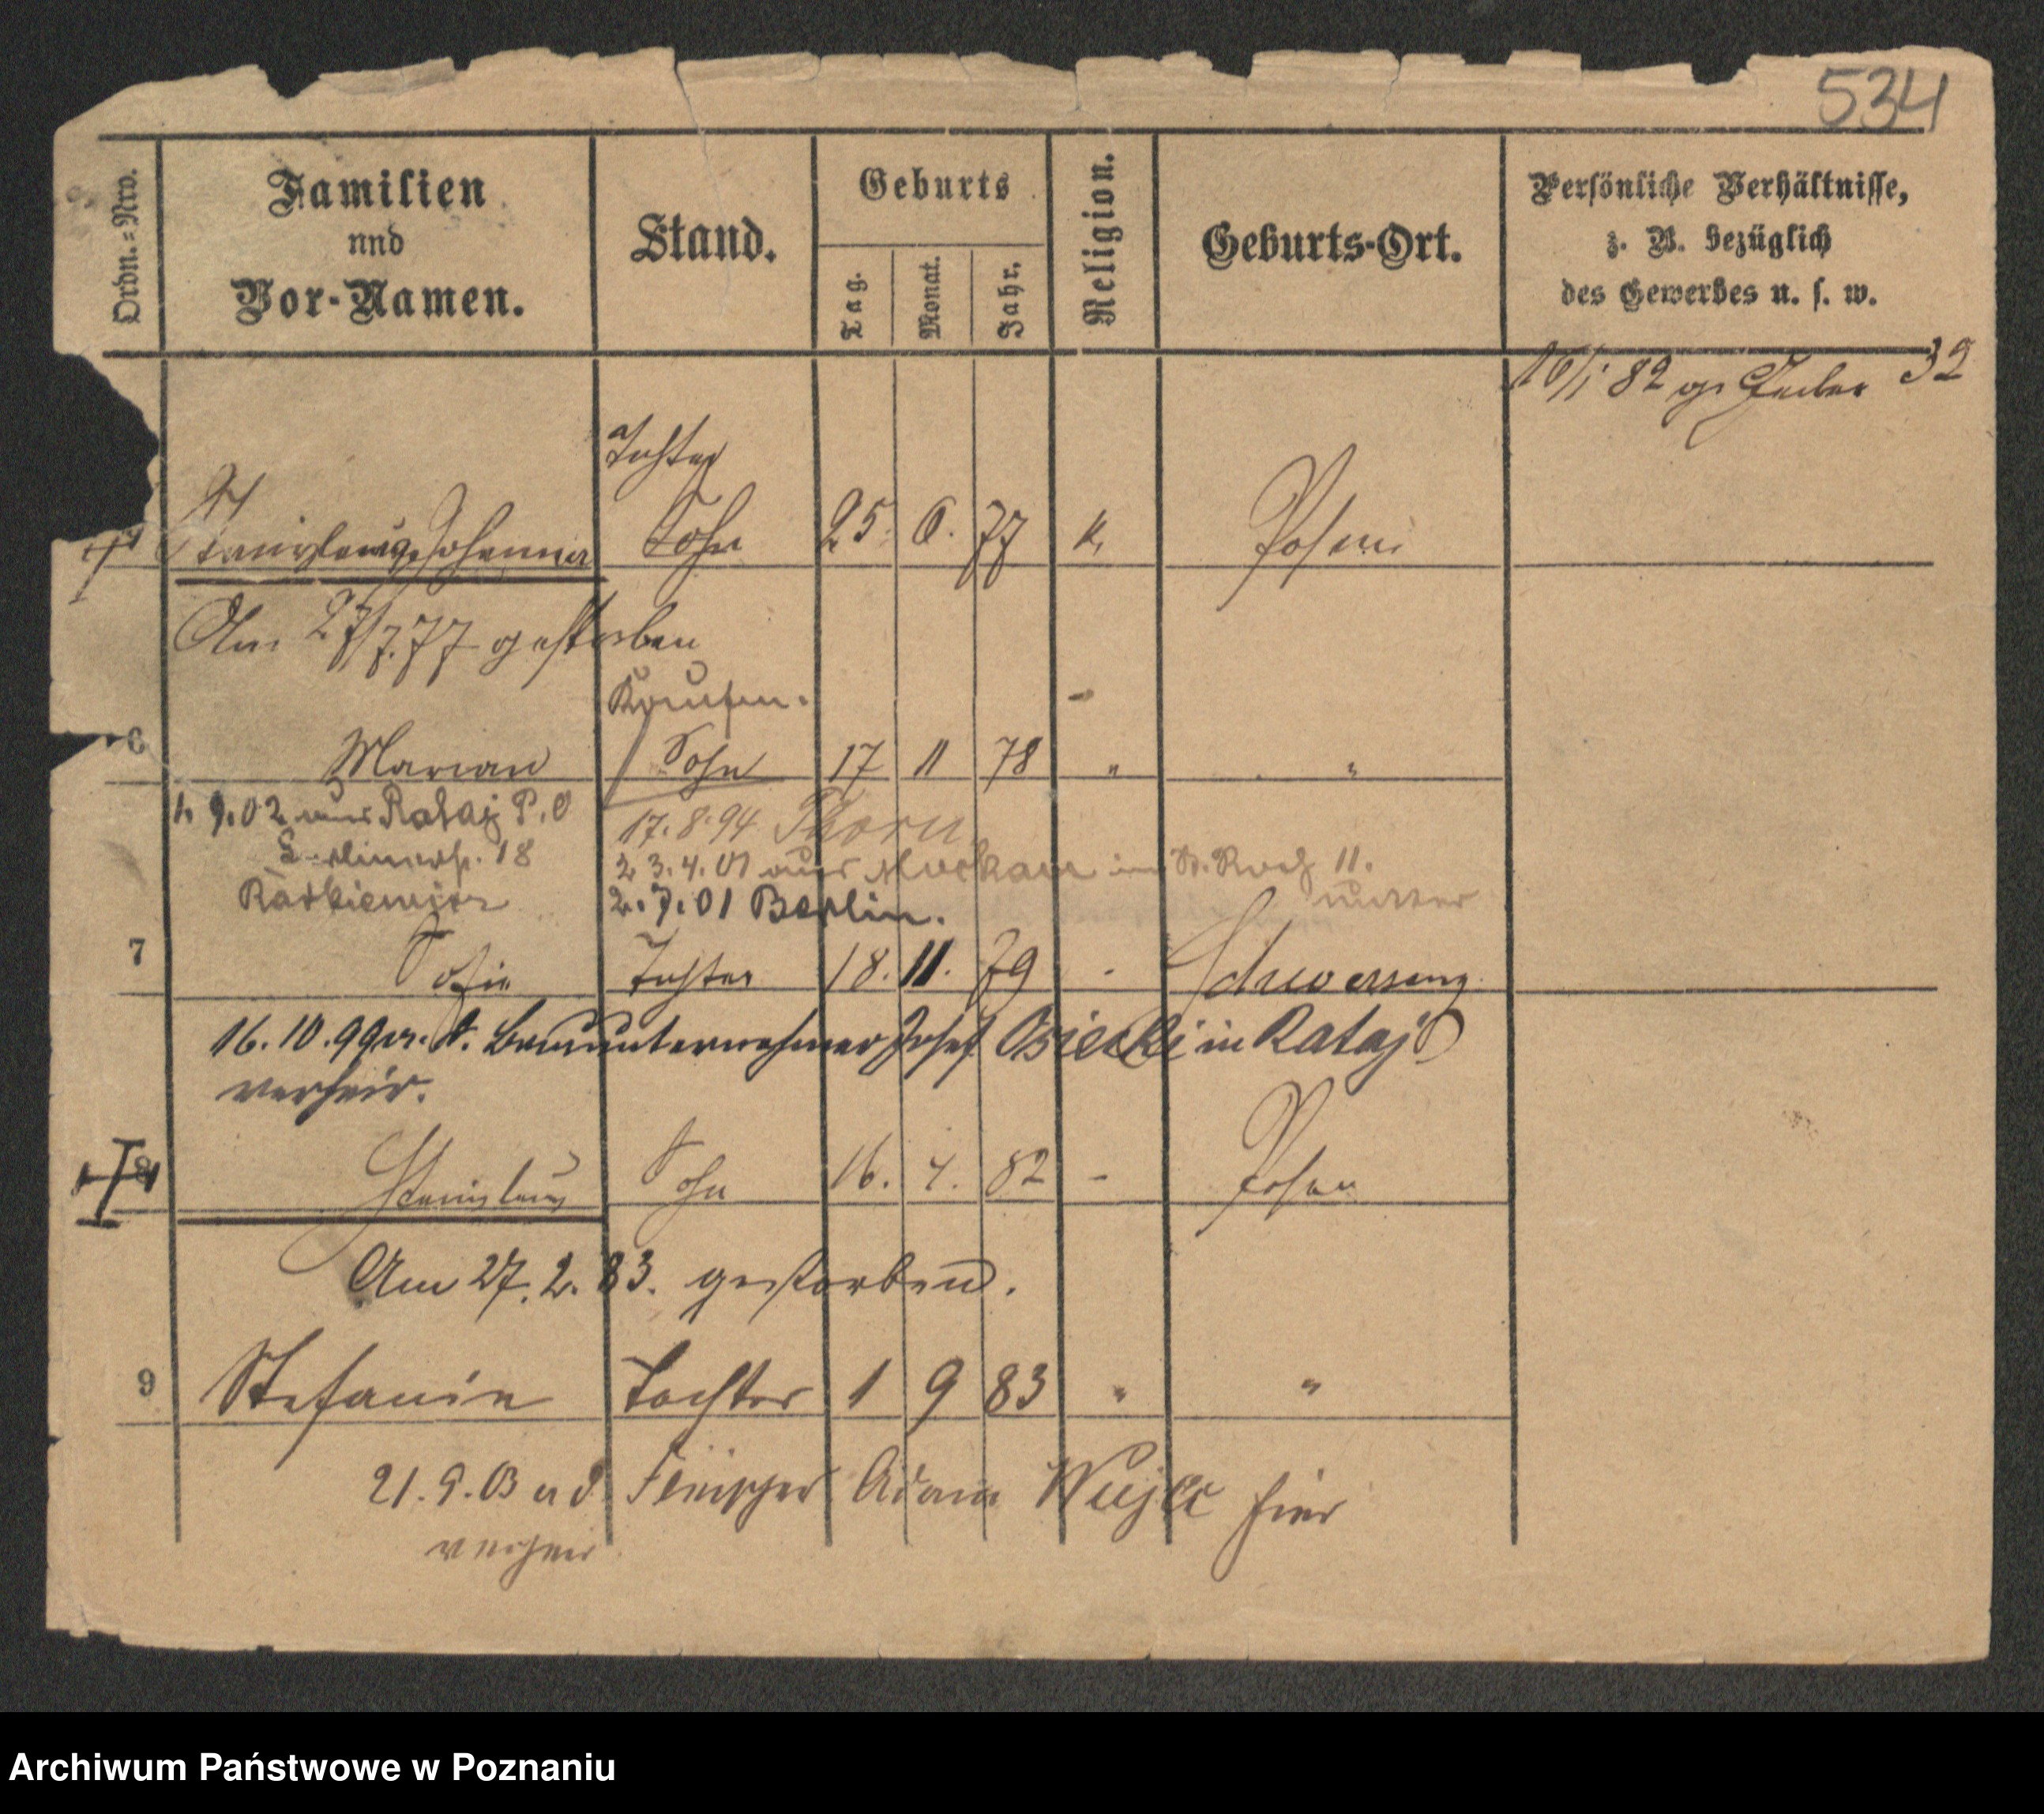 534
Ordn.=Nro.
Familien
und
Vor-Namen.
Stand.
Geburts
Tag.
Monat.
Jahr.
Religion.
Geburts-Ort.
Persönliche Verhältnisse,
z. B. bezüglich
des Gewerbes u. s. w.
16/1 82 32
Tochter
Johanna Sohn 25. 6. 77 k. Posen
Am 27/7.77 gestorben
Kaufm.
6 Marian Sohn 17 11 78 " "
1. 9.02 aus Rataj P. O
18
17. 8.94 Thorn
23.4.01 aus Mockau in St. Roch 11.
Mutter
2.7.01 Berlin.
7 Sofie Tochter 18. 11. 79 - Schwersenz
16.10.99 m. d. Bauunternehmer Josef Osiecki in Rataj
verheir.
8 Stanislaus Sohn 16. 4. 82 - Posen
Am 27.2.83. gestorben.
9 Stefanie Tochter 1 9 83 " "
21.9.03 m d. Adam hier
verheir
Archiwum Państwowe w Poznaniu